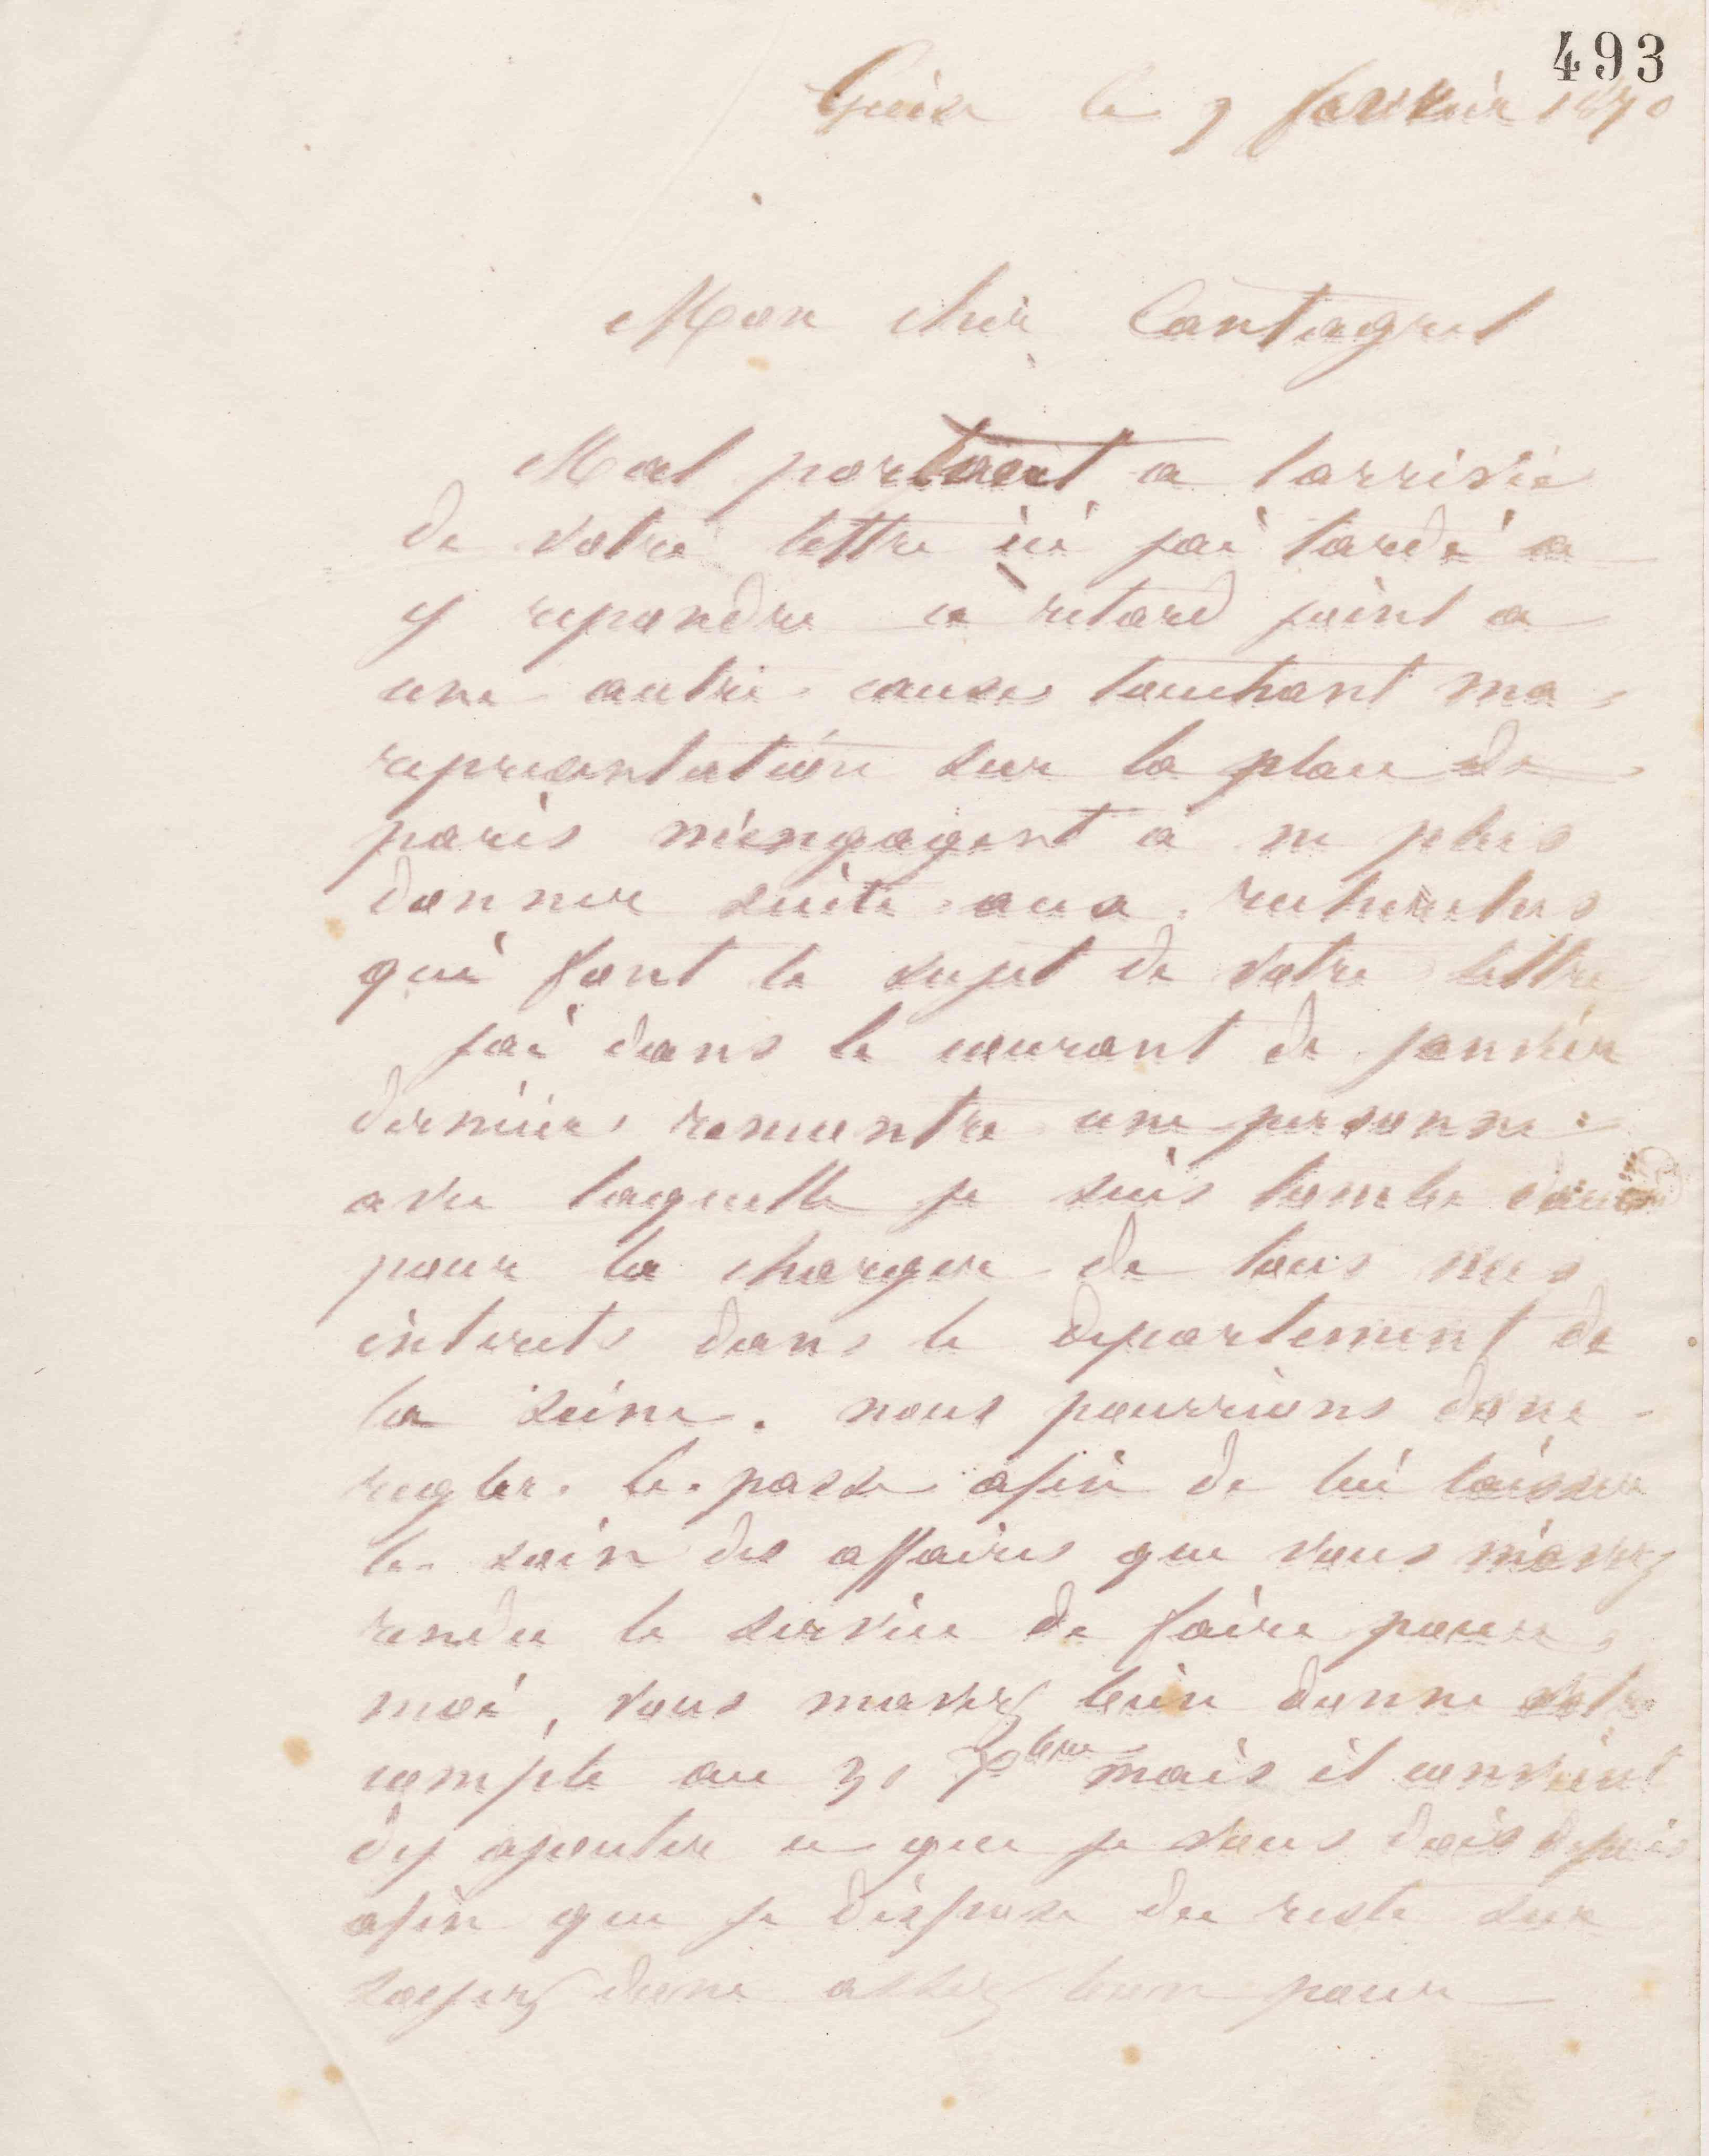 493
Guise le 9 février 1870
Mon cher Cantagrel
Mal portant a larrivée
de votre lettre ici jai tardé a
y repondre ce retard joint a
une autre cause touchant ma
representation sur la place de
paris m'engagent à ne plus
donner suite aux recherches
qui font le sujet de votre lettre
jai dans le courant de janvier
dernier rencontre une personne
avec laquelle je suis tombe
pour la charger de tous mes
interets dans le departement de
la Seine. nous pourrions donc
regler le passe afin de lui laisser
le soin des affaires que vous m'avez
rendu le service de faire pour
moi, vous mavez bien donne votre
compte au 31 mais il convient
dy ajouter ce que je vous dois depuis
afin que je dispose du reste sur
soyez donc assez bon pour